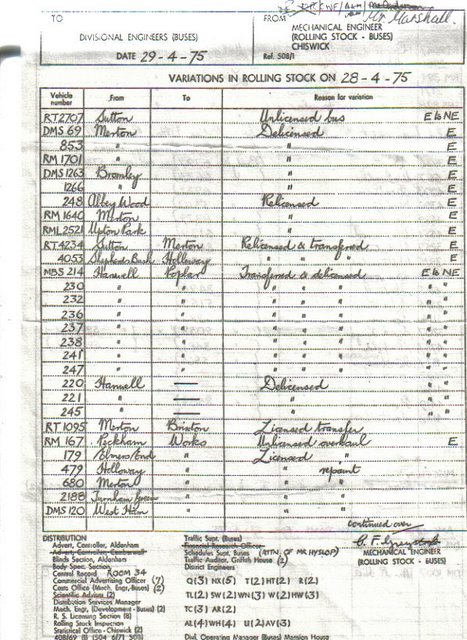 Mr. Marshall.
TO FROM MECHANICAL ENGINEER
DIVISIONAL ENGINEERS (BUSES) (ROLLING STOCK - BUSES)
CHISWICK
DATE 29-4-75 Ref. 508/1
VARIATIONS IN ROLLING STOCK ON 28-4-75
Vehicle number From To Reason for variation
RT2707 Sutton Unlicensed bus E to NE
DMS 69 Merton Delicensed E
853 " " E
RM 1701 " " E
DMS 1263 Bromley " E
1266 " " E
248 Abbey Wood Relicensed E
RM 1640 Merton " E
RML 2521 Upton Park " E
RT4234 Sutton Merton Relicensed & transferred E
4053 Shepherds Bush Holloway " " " E
MBS 214 Hanwell Poplar Transferred & delicensed E to NE
230 " " " " "
232 " " " " "
236 " " " " "
237 " " " " "
238 " " " " "
241 " " " " "
247 " " " " "
220 Hanwell — Delicensed " "
221 " — " " "
245 " — " " "
RT 1095 Merton Brixton Licensed transfer
RM 167 Peckham Works Unlicensed overhaul E
179 Elmers End " Licensed "
479 Holloway " " repaint
680 Merton " " "
2188 Turnham Green " " "
DMS 120 West Ham " " "
continued over
DISTRIBUTION
Advert. Controller, Aldenham
Advert. Controller, Camberwell
Blinds Section, Aldenham
Body Spec. Section
Central Record ROOM 34
Commercial Advertising Officer (7)
Costs Office (Mech. Engr. Buses) (2)
Scientific Adviser (2)
Distribution Services Manager
Mech. Engr. (Development - Buses) (2)
R. S. Licensing Section (8)
Rolling Stock Inspection
Statistical Office - Chiswick (2)
Traffic Supt. (Buses)
Schedules Supt. (Buses) (ATTN. OF MR HYSLOP)
Traffic Auditor, Griffith House (2)
District Engineers
Q(3) NX(5) T(2) HT(2) R(2)
TL(2) SW(2) WN(3) W(2) HW(3)
TC(3) AR(2)
AL(4) WH(4) U(2) AV(3)
Divl. Operating Manager (Buses) Mansion House
MECHANICAL ENGINEER
(ROLLING STOCK - BUSES)